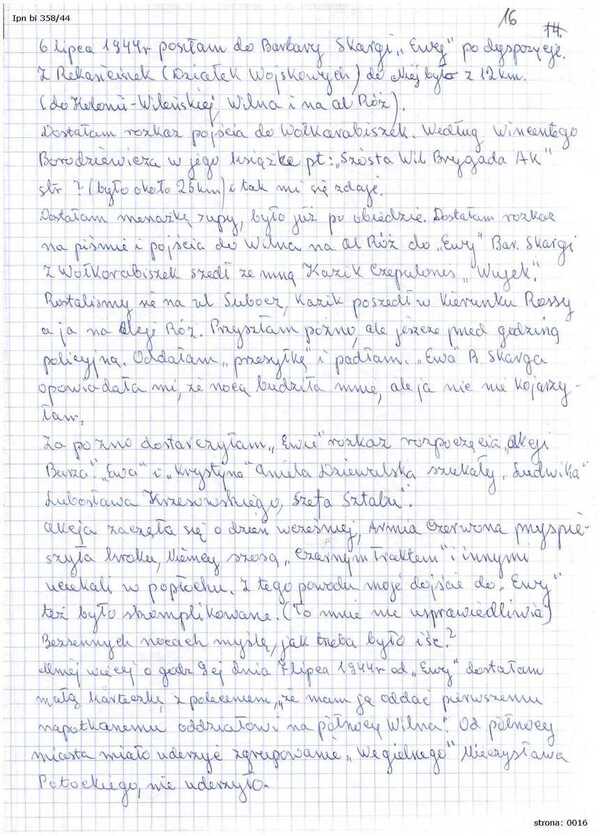 Ipn bi 358/44
16
14.
6 lipca 1944r poszłam do Barbary Skargi „Ewy" po dyspozycje.
Z Rekańciszek (Działek Wojskowych) do Niej było z 12km.
(do Kolonii-Wileńskiej, Wilna i na al Róż).
Dostałam rozkaz pójścia do Wołkorabiszek. Według Wincentego
Borodziewicza w jego książce pt: „Szósta Wil Brygada AK"
str ? (było około 25km) i tak mi się zdaje.
Dostałam menażkę zupy, było już po obiedzie. Dostałam rozkaz
na piśmie i pójścia do Wilna na al Róż do „Ewy" Bar. Skargi
Z Wołkorabiszek szedł ze mną Kazik Czepułonis „Wujek".
Rostaliśmy się na ul Subocz, Kazik poszedł w kierunku Rossy
a ja na aleji Róż. Przyszłam późno, ale jeszcze przed godziną
policyjną. Oddałam „przesyłkę i padłam. „Ewa" B. Skarga
opowiadała mi, że nocą budziła mnie, ale ja nic nie kojarzy-
łam.
Za późno dostarczyłam „Ewie" rozkaz rozpoczęcia „Akcji
Burza". „Ewa" i „Krystyna" Aniela Dziewulska szukały „Ludwika"
Lubosława Krzesowskiego, Szefa Sztabu".
Akcja zaczęła się o dzień wcześniej, Armia Czerwona przyspie-
szyła kroku, Niemcy szosą „Czarnym Traktem" i innymi
uciekali w popłochu. Z tego powodu moje dojście do „Ewy"
też było skomplikowane. (To mnie nie usprawiedliwia)
Bezsennych nocach myślę, jak trzeba było iść?
Mniej więcej o godz 9ej dnia 7 lipca 1944r od „Ewy" dostałam
małą karteczkę z poleceniem, „że mam ją oddać pierwszemu
napotkanemu oddziałowi na północy Wilna". Od północy
miasta miało uderzyć zgrupowanie „Węgielnego" Mieczysława
Potockiego, nie uderzyło.
strona: 0016